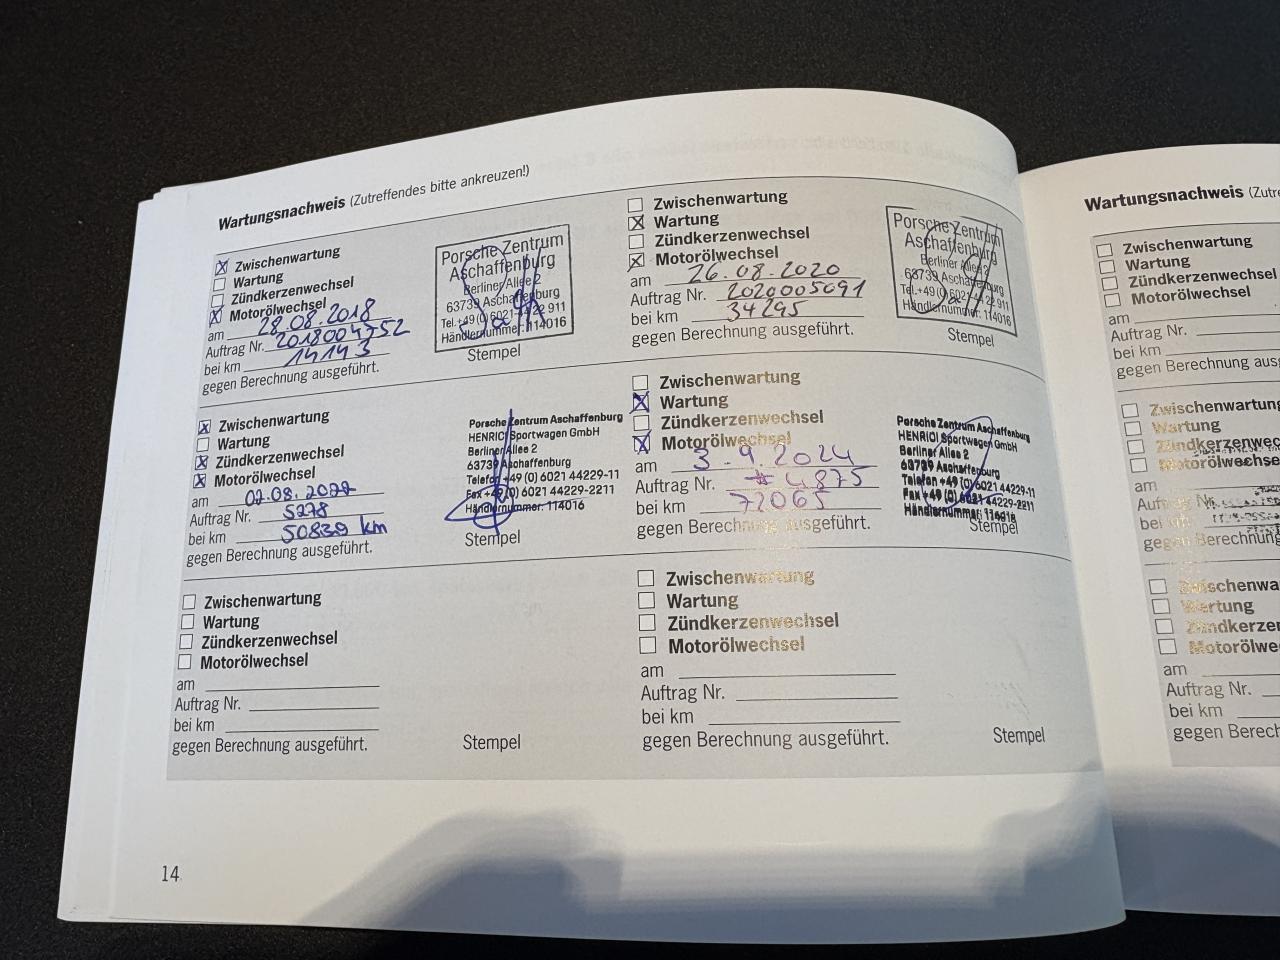 Wartungsnachweis (Zutreffendes bitte ankreuzen!)
Zwischenwartung
Wartung
Zündkerzenwechsel
Motorölwechsel
am 28.08.2018
Auftrag Nr. 2018004752
bei km 14143
gegen Berechnung ausgeführt.
Porsche Zentrum
Aschaffenburg
Berliner Allee 2
63739 Aschaffenburg
Tel.+49 (0) 6021-44 22 911
Händlernummer: 114016
Stempel
Zwischenwartung
Wartung
Zündkerzenwechsel
Motorölwechsel
am 26.08.2020
Auftrag Nr. 2020005091
bei km 34295
gegen Berechnung ausgeführt.
Porsche Zentrum
Aschaffenburg
Berliner Allee 2
63739 Aschaffenburg
Tel.+49 (0) 6021-44 22 911
Händlernummer: 114016
Stempel
Zwischenwartung
Wartung
Zündkerzenwechsel
Motorölwechsel
am 02.08.2022
Auftrag Nr. 5278
bei km 50839 km
gegen Berechnung ausgeführt.
Porsche Zentrum Aschaffenburg
HENRICI Sportwagen GmbH
Berliner Allee 2
63739 Aschaffenburg
Telefon +49 (0) 6021 44229-11
Fax +49 (0) 6021 44229-2211
Händlernummer: 114016
Stempel
Zwischenwartung
Wartung
Zündkerzenwechsel
Motorölwechsel
am 3.9.2024
Auftrag Nr. # 4875
bei km 72065
gegen Berechnung ausgeführt.
Porsche Zentrum Aschaffenburg
HENRICI Sportwagen GmbH
Berliner Allee 2
63739 Aschaffenburg
Telefon +49 (0) 6021 44229-11
Fax +49 (0) 6021 44229-2211
Händlernummer: 114016
Stempel
Zwischenwartung
Wartung
Zündkerzenwechsel
Motorölwechsel
am
Auftrag Nr.
bei km
gegen Berechnung ausgeführt.
Stempel
Zwischenwartung
Wartung
Zündkerzenwechsel
Motorölwechsel
am
Auftrag Nr.
bei km
gegen Berechnung ausgeführt.
Stempel
14
Wartungsnachweis (Zutre
Zwischenwartung
Wartung
Zündkerzenwechsel
Motorölwechsel
am
Auftrag Nr.
bei km
gegen Berechnung ausg
Zwischenwartung
Wartung
Zündkerzenwec
Motorölwechse
am
Auftrag Nr.
bei km
gegen Berechnung
Zwischenwa
Wartung
Zündkerzer
Motorölwe
am
Auftrag Nr.
bei km
gegen Berec